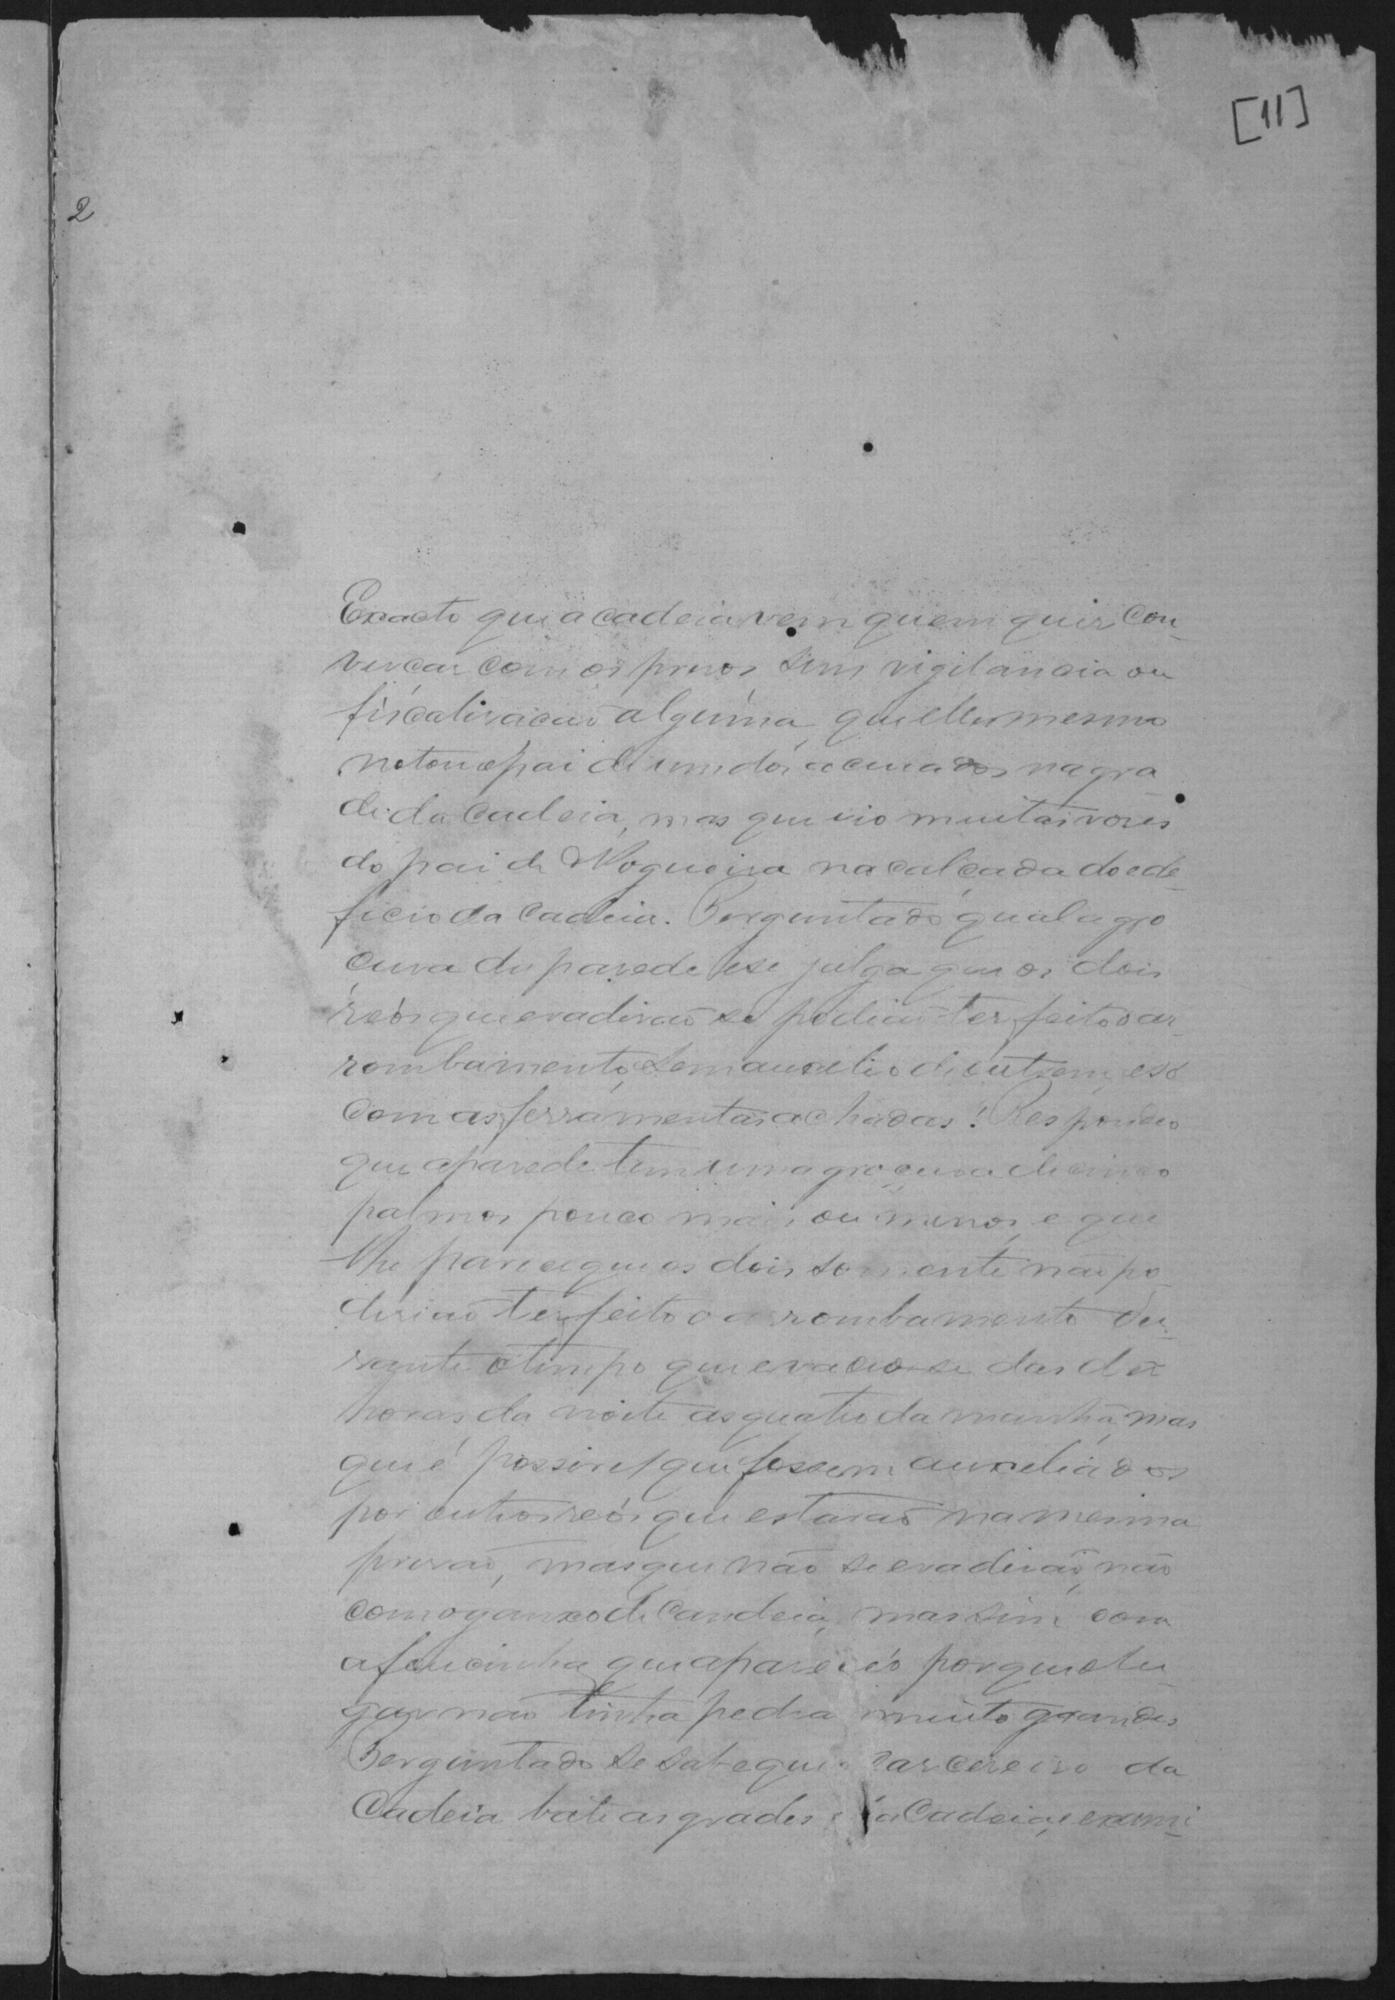 [11]
2
Exacto que a cadeia vem quem quer con-
vercar com os prezos sem vigilancia ou
fiscalisacaõ alguma, que elle mesmo
notou o pai de um dos accusados na gra
de da cadeia, mas que vio muitas vezes
do pai de Nogueira na calçada do ede-
ficio da cadeia. Perguntado qual a gro
çura da parede e se julga que os dois
réos que evadiraõ se podiaõ ter feito o ar-
rombamento, sem auxelio de outrem, e só
com as ferramentas achadas! Respondeo
que a parede tem uma groçura de cinco
palmos pouco mais ou menos, e que
lhe parece que os dois somente naõ po-
deriaõ ter feito o arrombamento du-
rante o tempo que evadio-se das dez
horas da noite as quatro da manhã, mas
que é possivel que fossem auxeliados
por outros réos que estavaõ na mesma
prizaõ, mas que não se evadiraõ, não
com o ganxo de candeia, mas sim com
a foucinha que apareceo porque o lu
gar naõ tinha pedra muito grandes
Perguntado se sabe que o carcereiro da
Cadeia bate as grades da Cadeia, e exami-